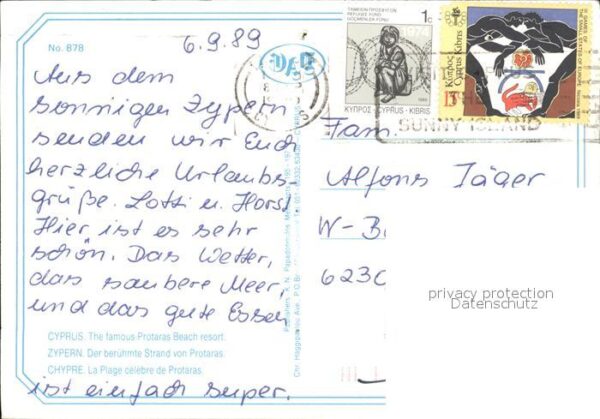 No. 878
6.9.89
Aus dem
sonnigen Zypern
senden wir Euch
herzliche Urlaubs
grüße. Lotti u. Horst
Hier ist es sehr
schön. Das Wetter,
das saubere Meer,
und das gute Essen
ist einfach super.
CYPRUS. The famous Protaras Beach resort.
ZYPERN. Der berühmte Strand von Protaras.
CHYPRE. La Plage célèbre de Protaras.
1c
1974
ΚΥΠΡΟΣ · CYPRUS · KIBRIS
Κύπρος
Cyprus Kibris
SUNNY ISLAND
Fam.
Alfons Jäger
W-B
6230
privacy protection
Datenschutz